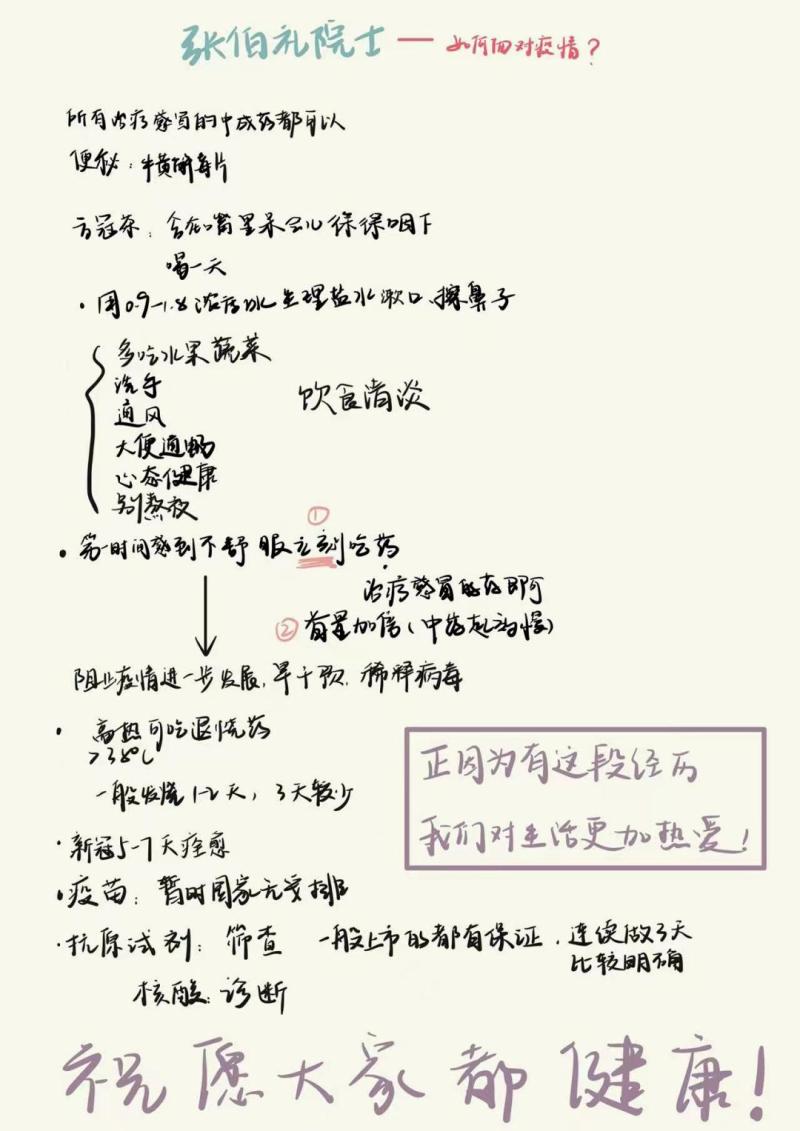 张伯礼院士 — 如何面对疫情?
所有治疗感冒的中成药都可以
便秘: 牛黄解毒片
方冠茶: 含在嘴里呆会儿 保保咽下
喝一天
· 用0.9-1.8浓度 生理盐水漱口、擦鼻子
多吃水果蔬菜
洗手
通风
大便通畅
心态健康
别熬夜
饮食清淡
①
· 第一时间感到不舒服立刻吃药
治疗感冒的药即可
② 首量加倍(中药起效慢)
阻止疫情进一步发展,早干预,稀释病毒
· 高热可吃退烧药
>38℃
一般发烧1-2天, 3天较少
· 新冠5-7天痊愈
· 疫苗: 暂时国家无安排
· 抗原试剂: 筛查 一般上市的都有保证. 连续做3天
比较明确
核酸: 诊断
正因为有这段经历
我们对生活更加热爱!
祝愿大家都健康!